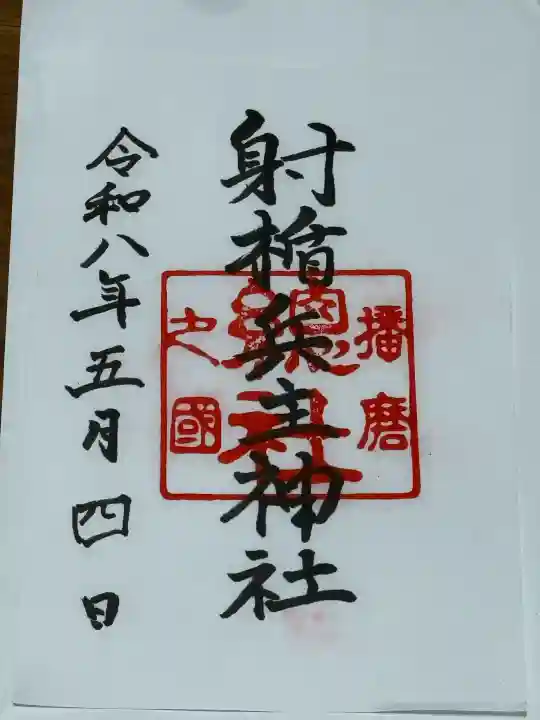 射楯兵主神社
播磨
之國
令和八年五月四日